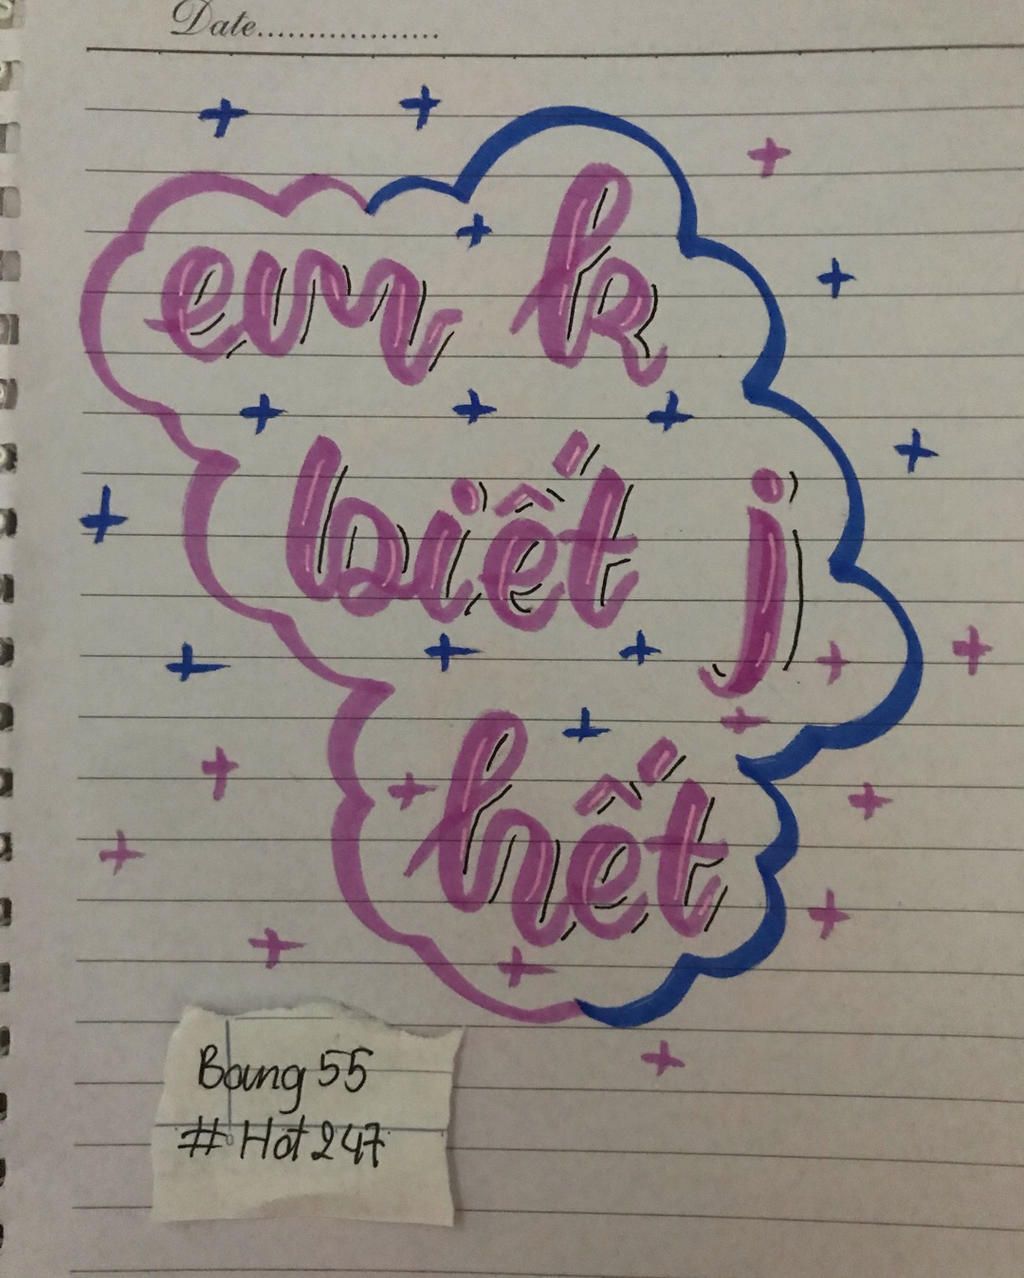 Date..................
em k
biết j
hết
Bang 55
# Hot 247